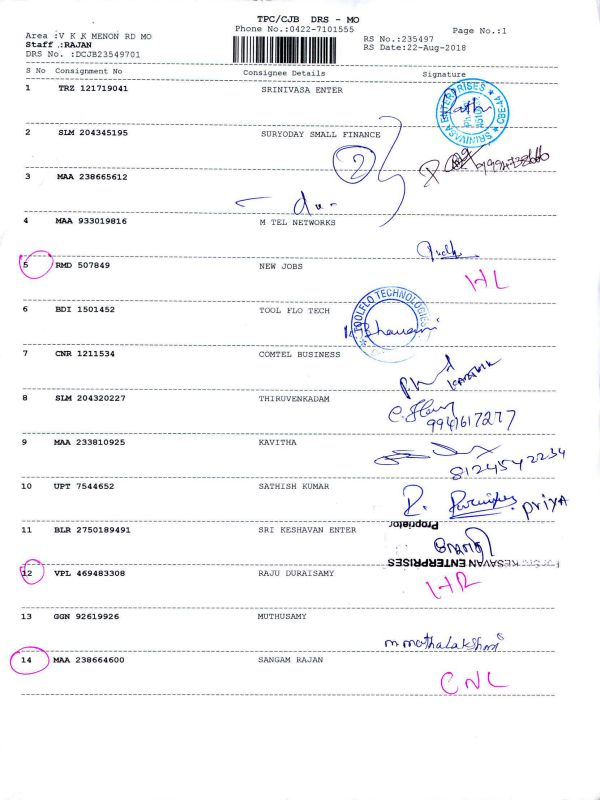 TPC/CJB DRS - MO
Area :V K K MENON RD MO Phone No.:0422-7101555 Page No.:1
Staff :RAJAN RS No.:235497
DRS No. :DCJB23549701 RS Date:22-Aug-2018
S No Consignment No Consignee Details Signature
1 TRZ 121719041 SRINIVASA ENTER
SRINIVASA ENTERPRISES ★ CBE-44 ★
2 SLM 204345195 SURYODAY SMALL FINANCE
2
3 MAA 238665612
4 MAA 933019816 M TEL NETWORKS
5 RMD 507849 NEW JOBS
HL
6 BDI 1501452 TOOL FLO TECH
TOOLFLO TECHNOLOGIES
Bhavani
7 CNR 1211534 COMTEL BUSINESS
8 SLM 204320227 THIRUVENKADAM
9941617277
9 MAA 233810925 KAVITHA
8124542234
10 UPT 7544652 SATHISH KUMAR
PRIYA
Proprietor
11 BLR 2750189491 SRI KESHAVAN ENTER
KESAVAN ENTERPRISES
12 VPL 469483308 RAJU DURAISAMY
HR
13 GGN 92619926 MUTHUSAMY
m.mathalakshmi
14 MAA 238664600 SANGAM RAJAN
CNL